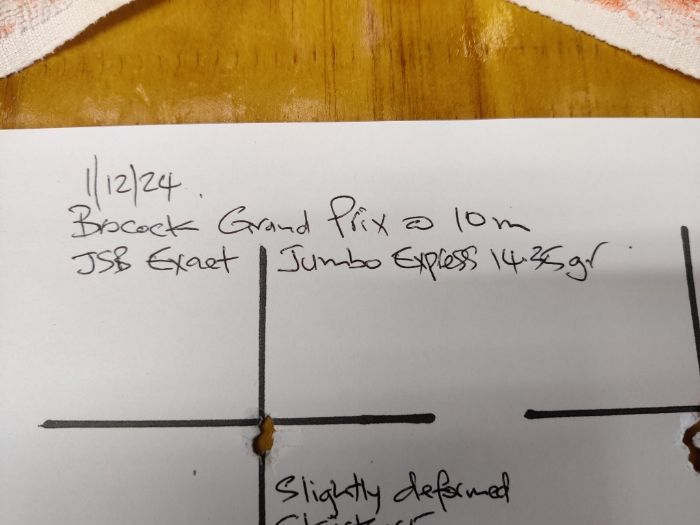 1/12/24.
Brocock Grand Prix @ 10m
JSB Exact Jumbo Express 14.35gr.
Slightly deformed